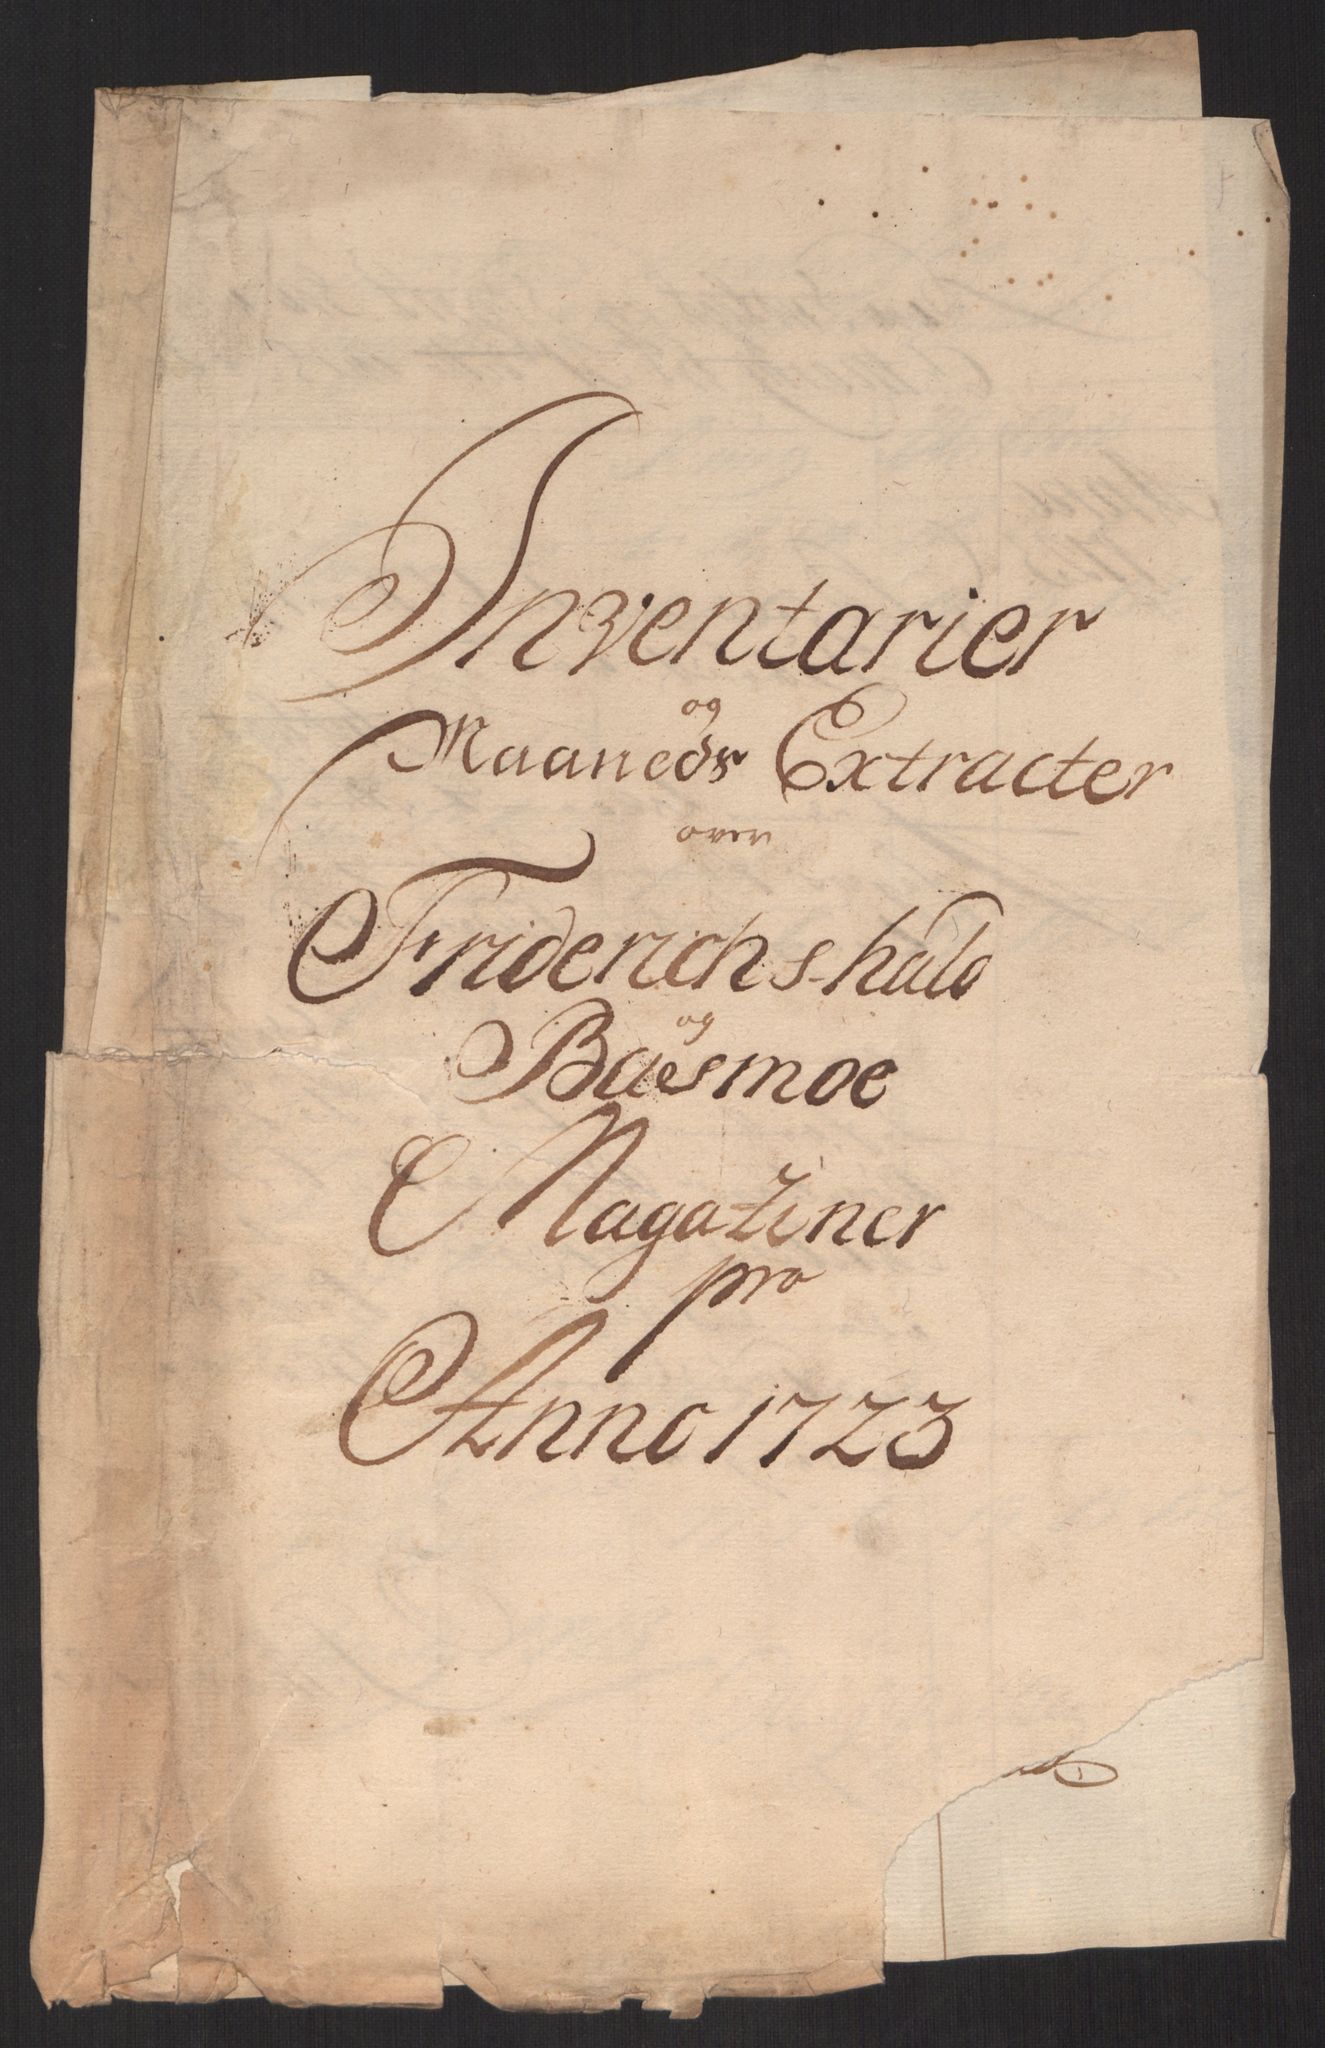 Inventarier
og
Maaneds Extracter
over
Friderichshald
og
Basmoe
Magaziner
pro
Anno 1723